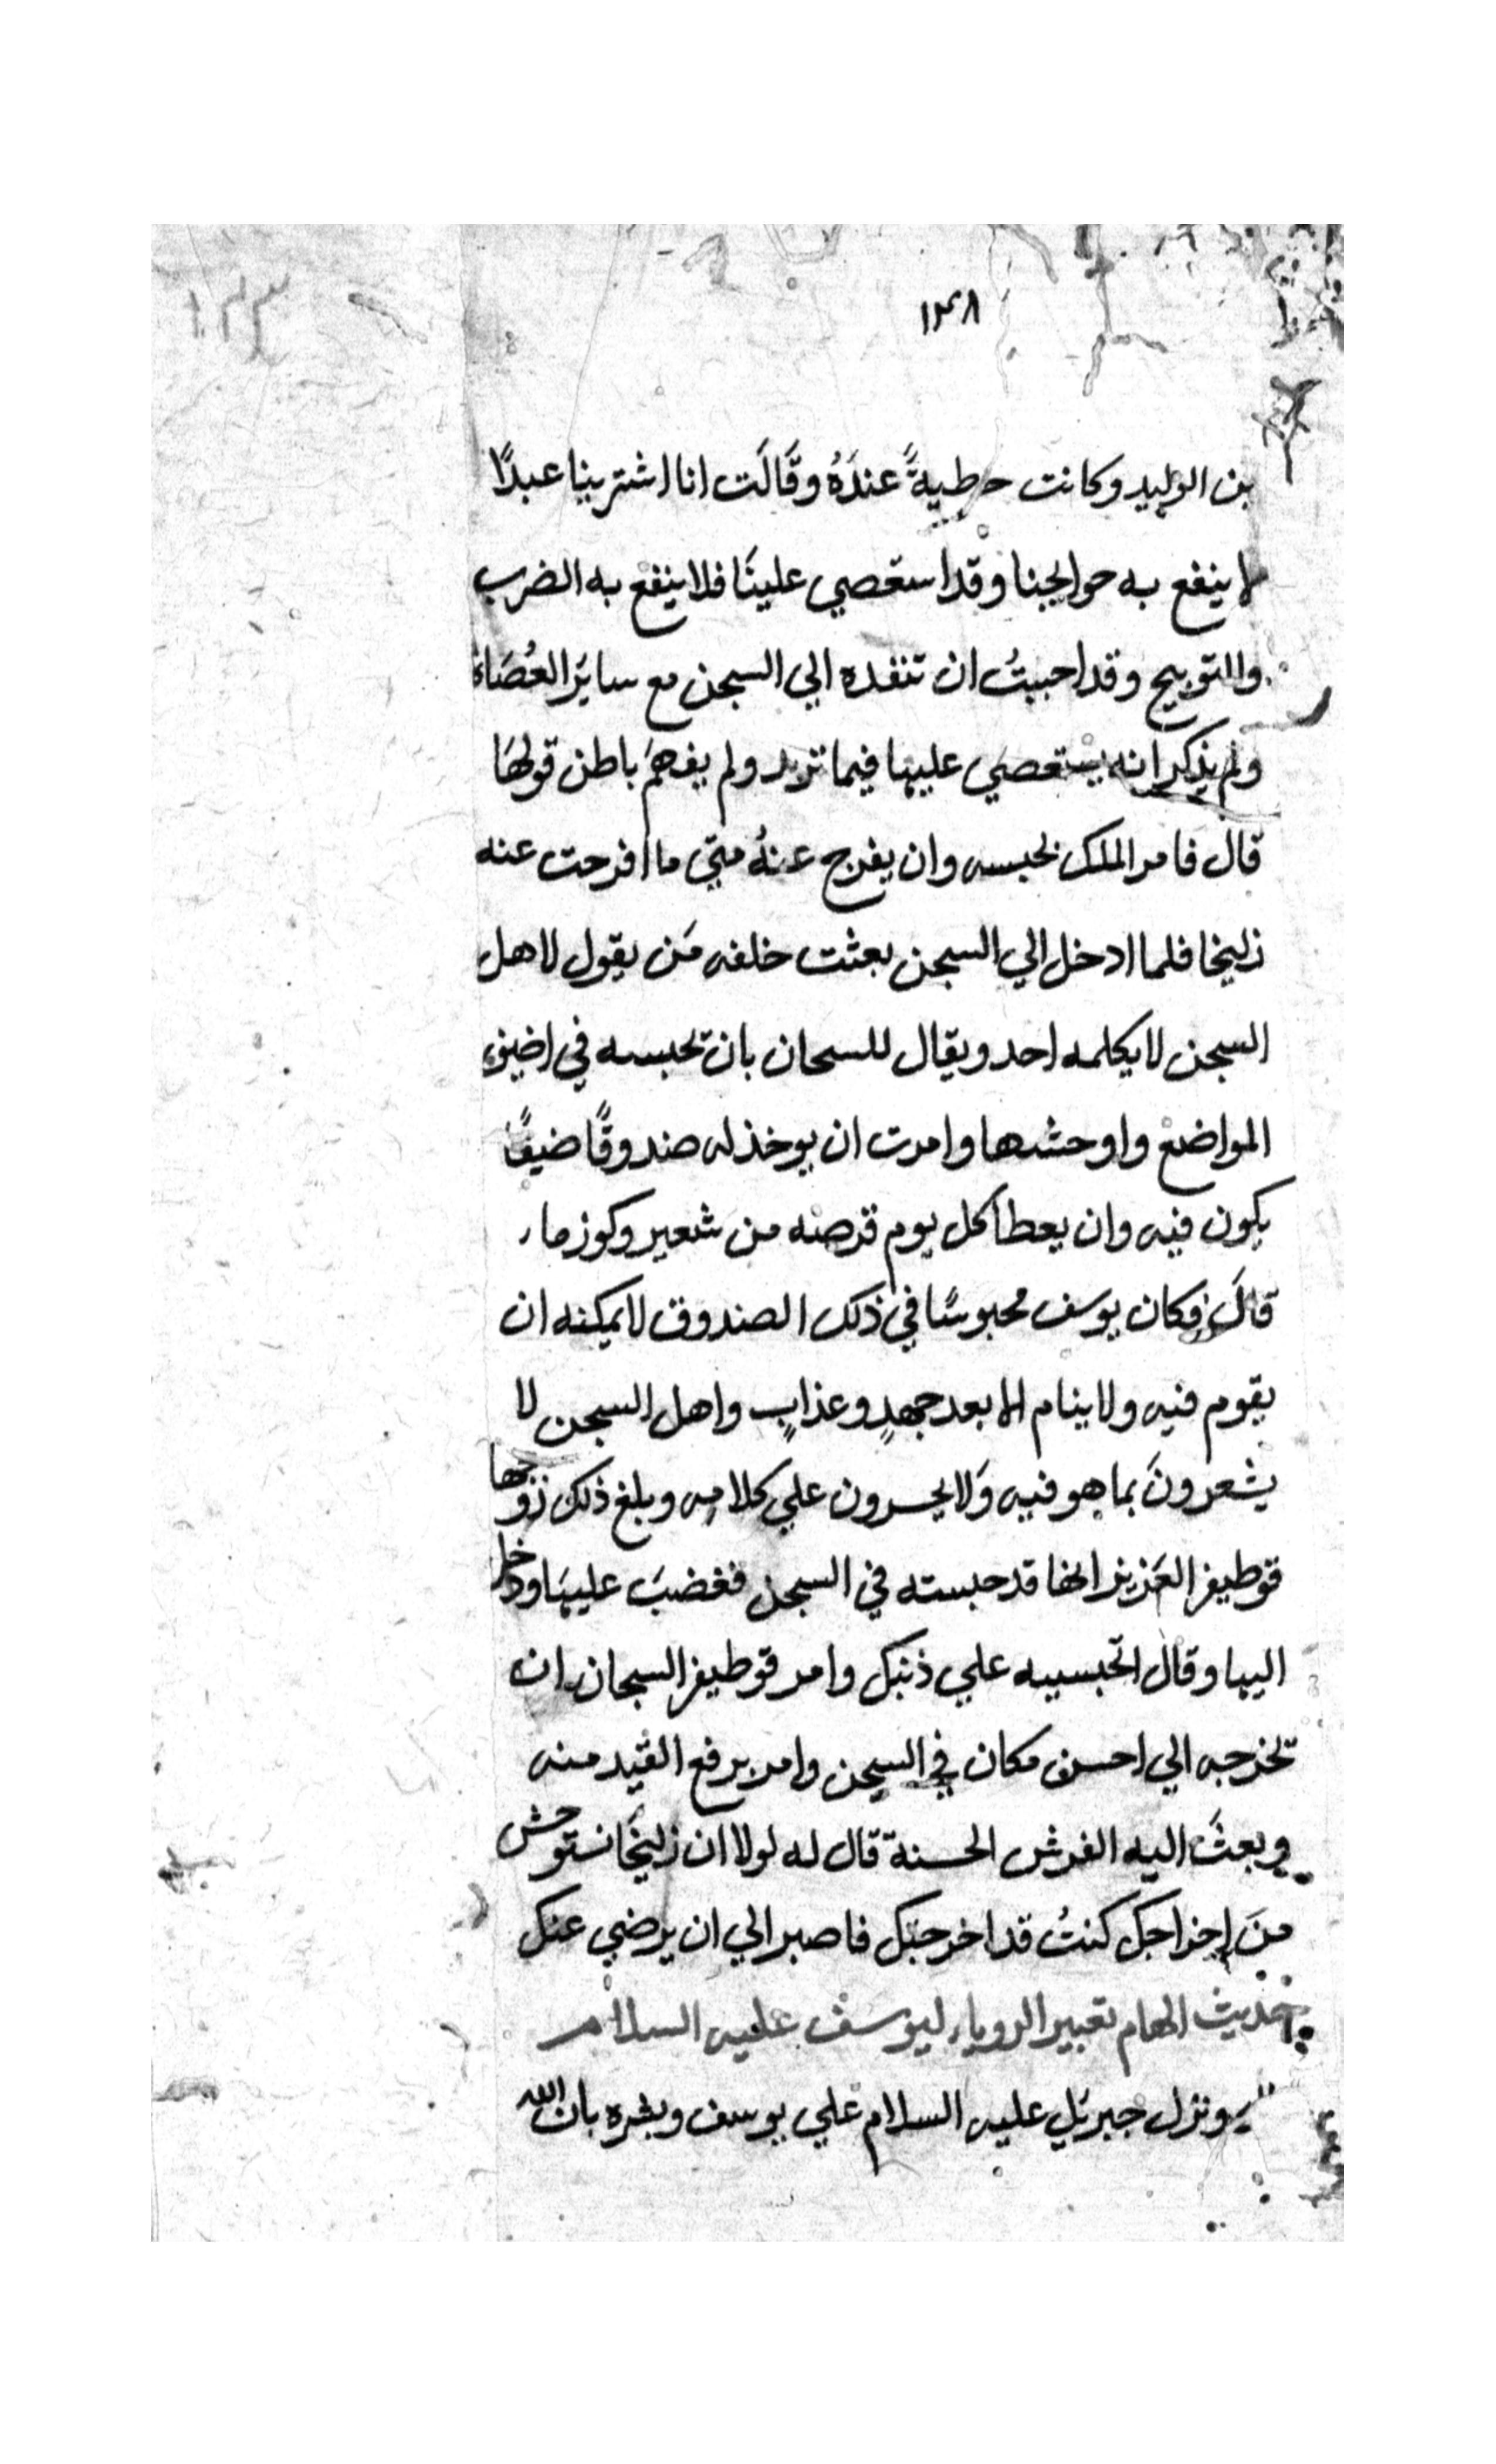 ١٣٨
بن الوليد وكانت حطيةً عندَهُ وقَالَت انا اشترينا عبدًا
لا ينفع به حوايجنا وقد استعصي علينَا فلا ينفع به الضرب
والتوبيح وقد احببتُ ان تنفده الي السجن مع سايَر العُصَاة
ولم يذكر انه يستعصي عليها فيما تريد ولم يفهَم باطن قولهَا
قال فامر الملك بحبسه وان يفرج عنهُ متي ما افرحت عنه
زليخا فلما ادخل الي السجن بعثت خلفه مَن يقول لاهل
السجن لا يكلمه احد ويقال للسحان بان تحبسه في اضيق
المواضع واوحشها وامرت ان يوخذ له صندوقًا ضيقًا
يكون فيه وان يعطا كل يوم قرصه من شعير وكوز ما
قالَ فكان يوسف محبوسًا في ذلك الصندوق لا يمكنه ان
يقوم فيه ولا ينام الا بعد جهدٍ وعذابٍ واهل السجن لا
يشعرونَ بما هو فيه وَلا يحسرون علي كلامه وبلغ ذلك زوجها
قوطيفر العَزيز انها قد حبسته في السجن فغضبَ عليهَا ودخل
اليها وقال اتحبسيه علي ذنبك وامر قوطيفر السجان ان
تخرجه الي احسن مكان في السجن وامر برفع القيد منه
وبعثَ اليه الفرش الحسنة قال له لولا ان زليخَا تستوحش
منَ اخراجك كنتُ قد اخرجتك فاصبر الي ان يرضي عنك
حديث الهام تعبير الروياء ليوسف عليه السلام
ونزل جبريَل عليه السلام علي يوسف وبشره بان الله